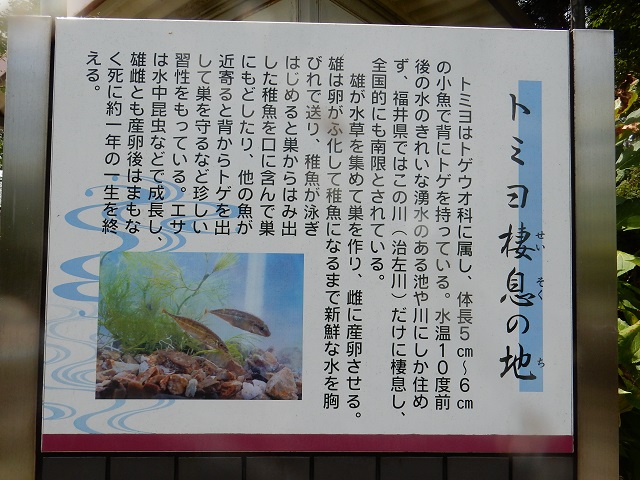 トミヨ棲息の地
せい
そく
ち
トミヨはトゲウオ科に属し、体長５㎝～６㎝
の小魚で背にトゲを持っている。水温１０度前
後の水のきれいな湧水のある池や川にしか住め
ず、福井県ではこの川（治左川）だけに棲息し、
全国的にも南限とされている。
雄が水草を集めて巣を作り、雌に産卵させる。
雄は卵がふ化して稚魚になるまで新鮮な水を胸
びれで送り、稚魚が泳ぎ
はじめると巣からはみ出
した稚魚を口に含んで巣
にもどしたり、他の魚が
近寄ると背からトゲを出
して巣を守るなど珍しい
習性をもっている。エサ
は水中昆虫などで成長し、
雄雌とも産卵後はまもな
く死に約一年の一生を終
える。